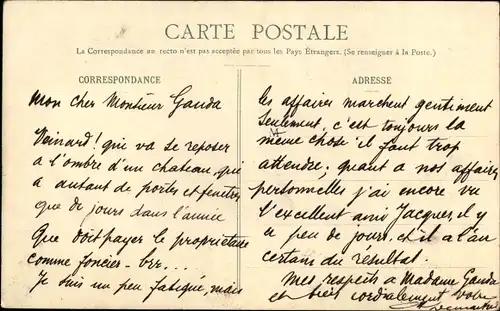 CARTE POSTALE
La Correspondance au recto n'est pas acceptée par tous les Pays Étrangers. (Se renseigner à la Poste.)
CORRESPONDANCE
Mon cher Monsieur Ganda
Veinard! qui va se reposer
a l'ombre d'un chateau, qui
a autant de portes et fenêtres
que de jours dans l'année
Que doit payer le propriétaire
comme foncier - ber...
Je suis un peu fatigué, mais
ADRESSE
les affaires marchent gentiment
seulement, c'est toujours la
même chose il faut trop
attendre; quant a nos affaires
personnelles j'ai encore vu
l'excellent ami Jacques, il y
a peu de jours, et il a l'air
certain du résultat.
Mes respects a Madame Ganda
et bien cordialement votre